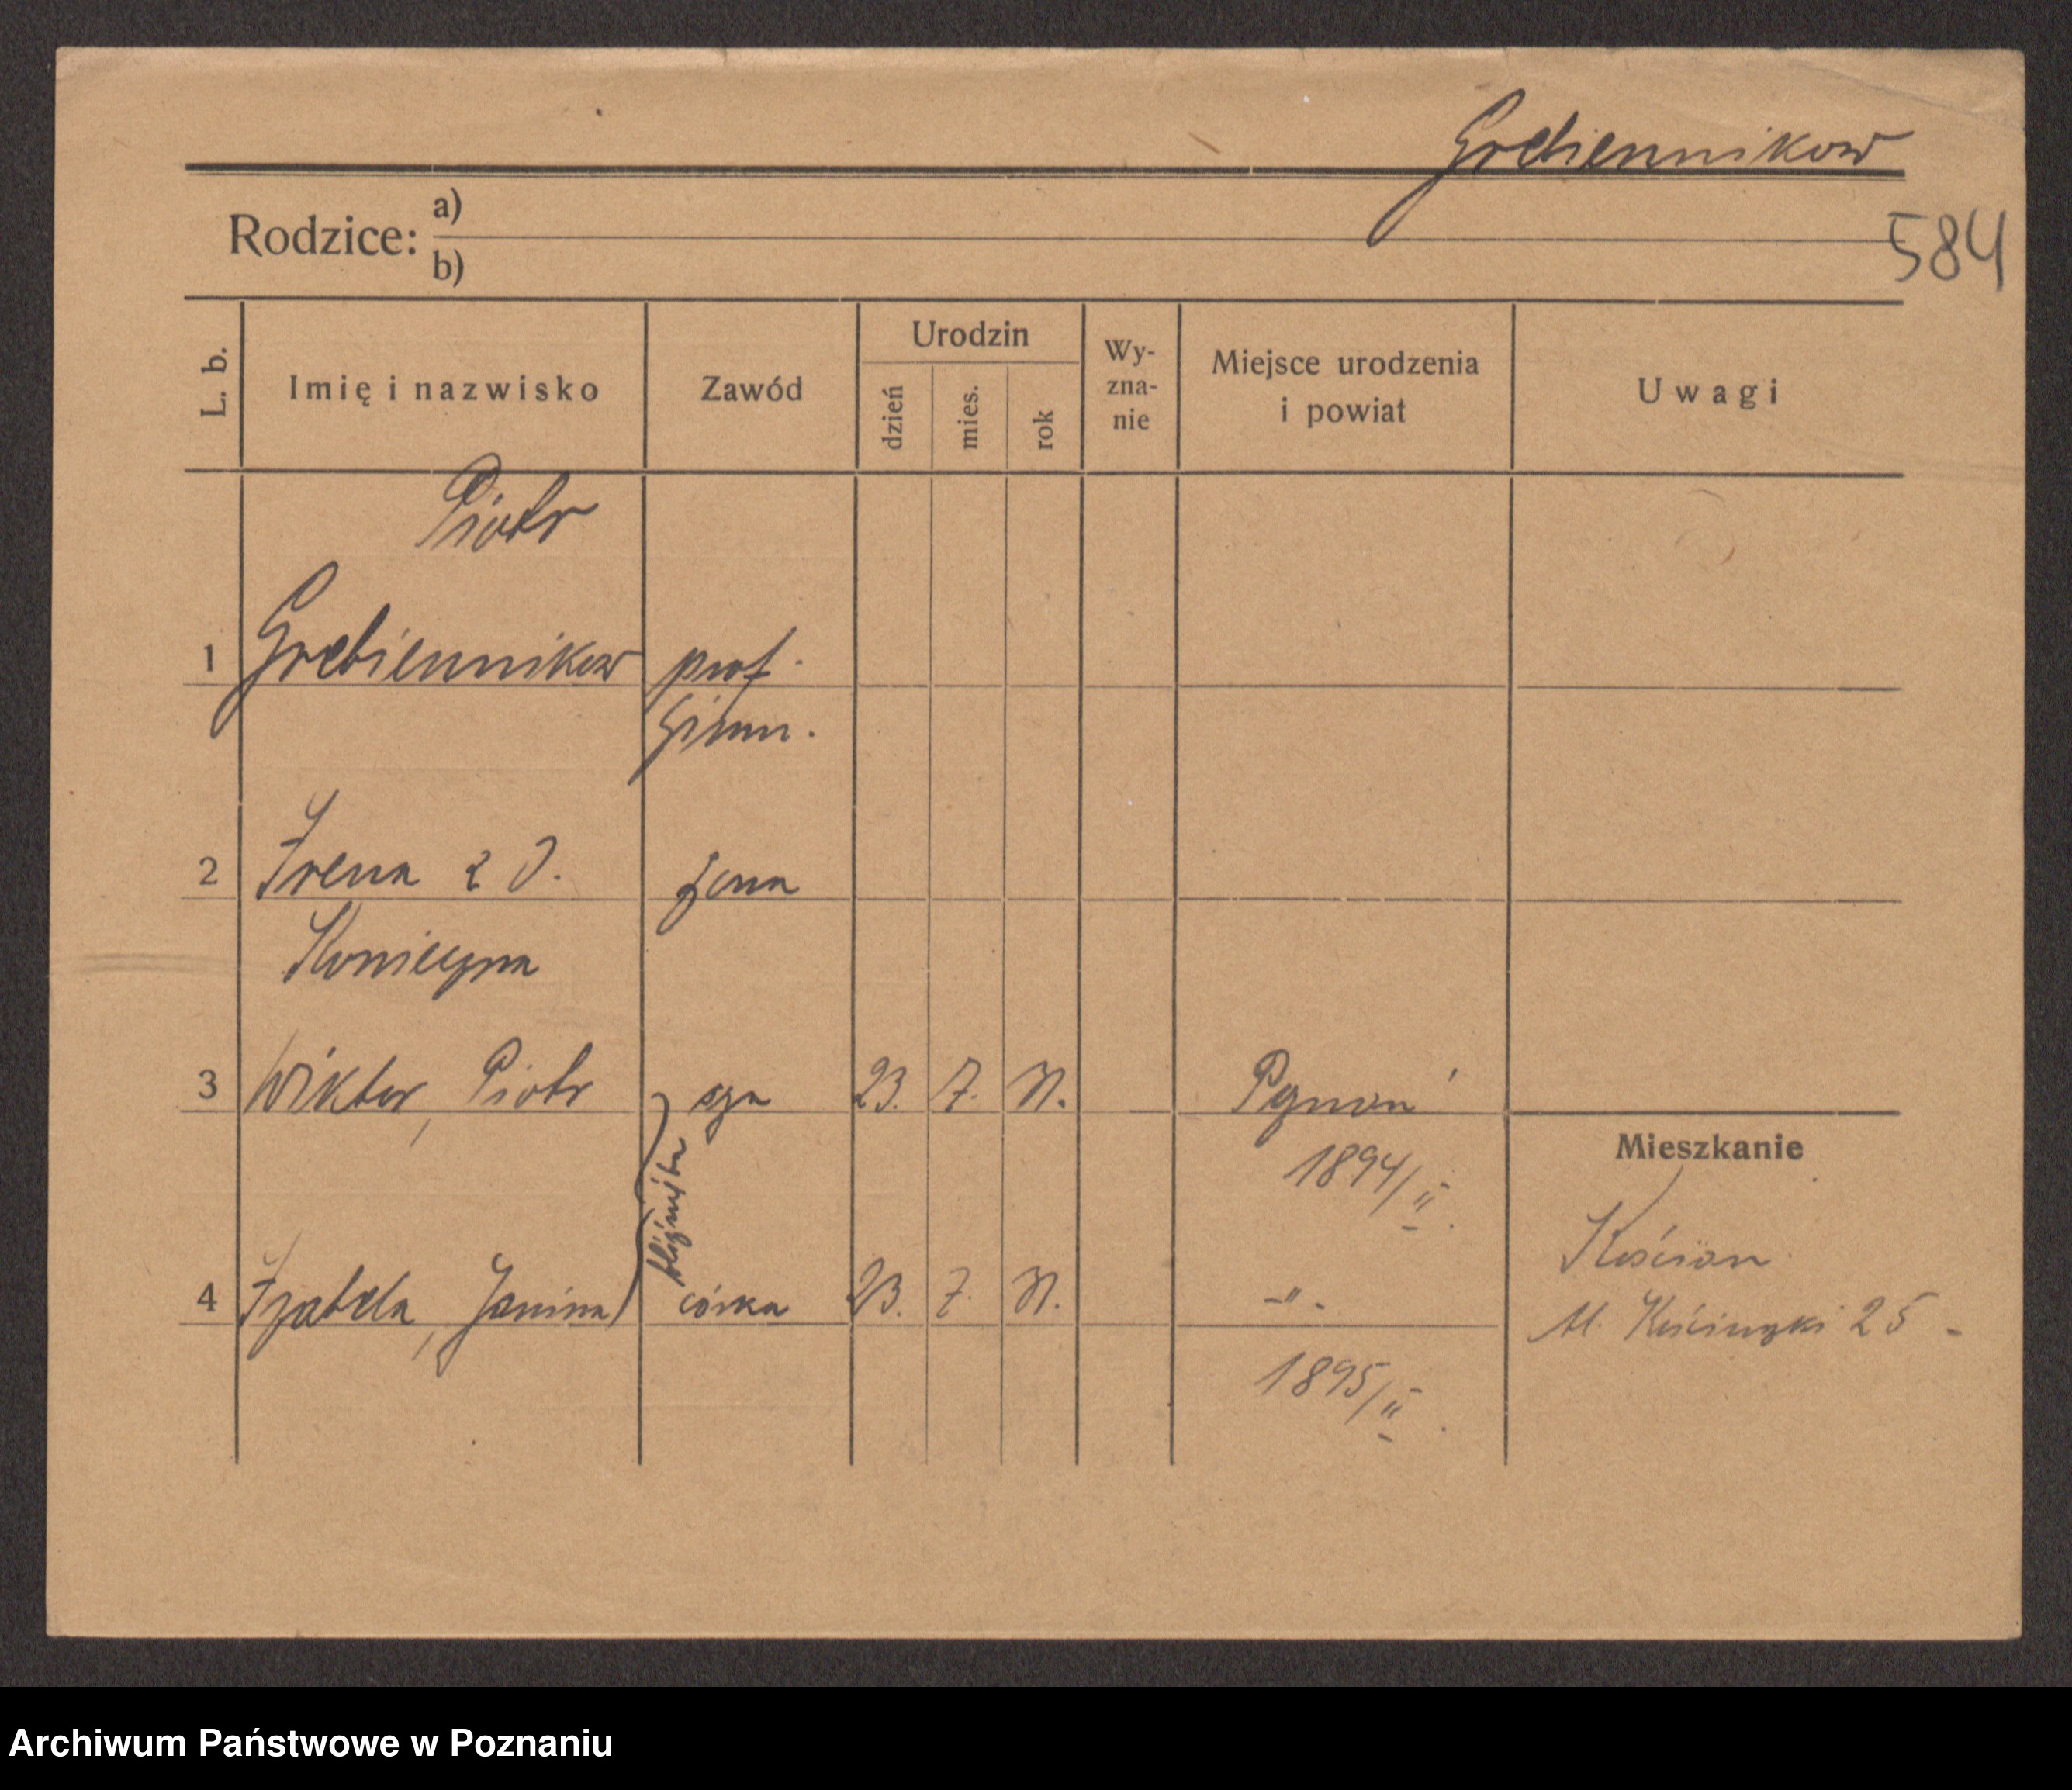 Grebiennikow
584
Rodzice: a)
b)
L. b.
Imię i nazwisko
Zawód
Urodzin
dzień
mies.
rok
Wy-
zna-
nie
Miejsce urodzenia
i powiat
Uwagi
Piotr
1 Grebiennikow prof.
Gimn.
2 Irena z D. żona
Konieczna
3 Wiktor, Piotr syn 23. 7. 31. Poznań
bliźnięta
1894/II.
Mieszkanie
Kościan
4 Izabela, Janina córka 23. 7. 31. -"-
Al. Kościuszki 25
1895/II.
Archiwum Państwowe w Poznaniu